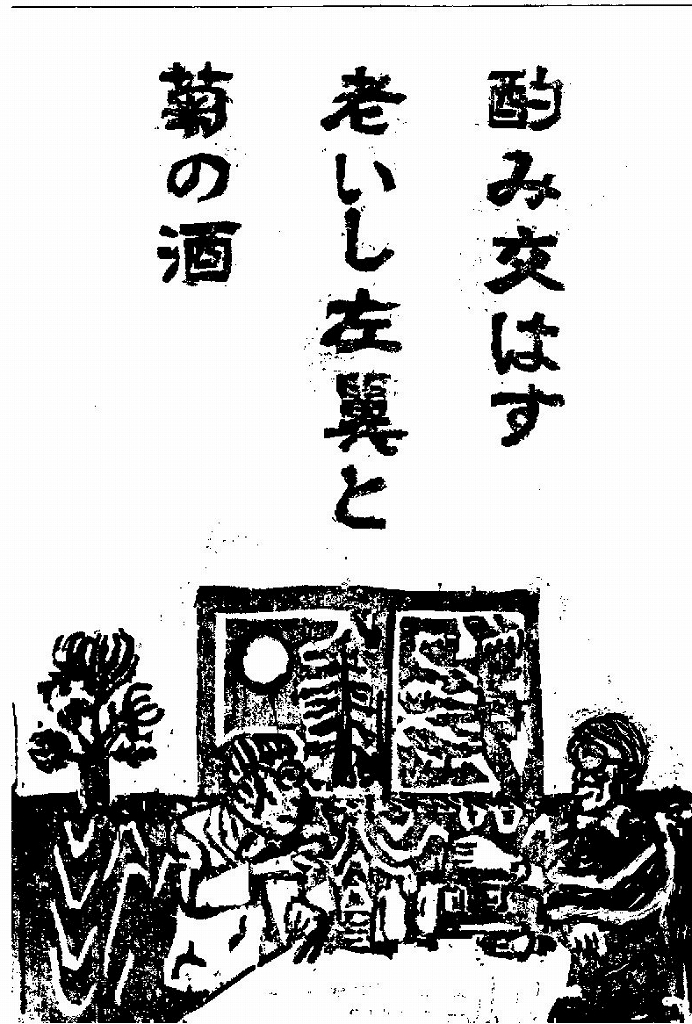 酌み交はす
老いし左翼と
菊の酒